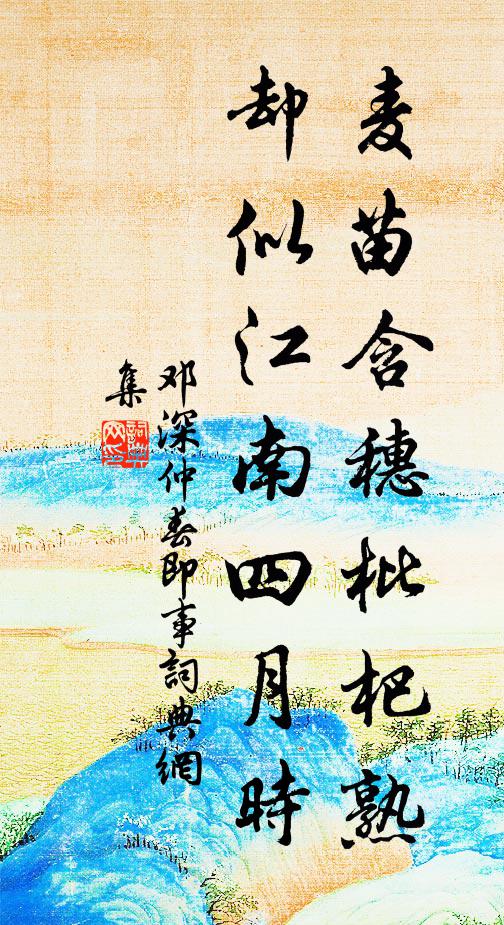 麦苗含穗枇杷熟
却似江南四月時
邓深仲春即事詞典網
集